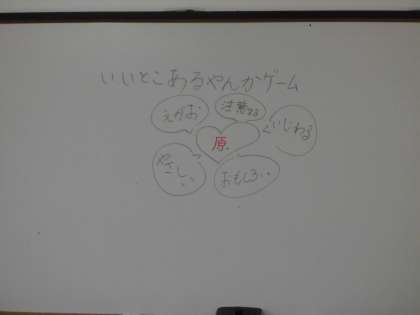 いいとこあるやんかゲーム
えがお
注意する
いじわる
原
やさしい
おもしろい